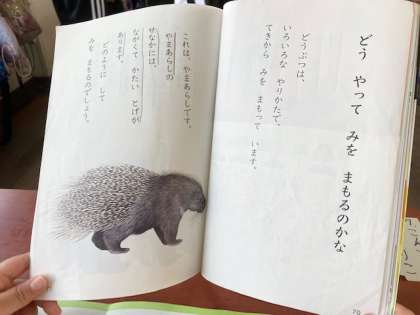 どう やって みを まもるのかな
どうぶつは、
いろいろな やりかたで、
てきから みを まもって います。
70
これは、やまあらしです。
やまあらしの
せなかには、
ながくて かたい とげが
あります。
どのように して
みを まもるのでしょう。